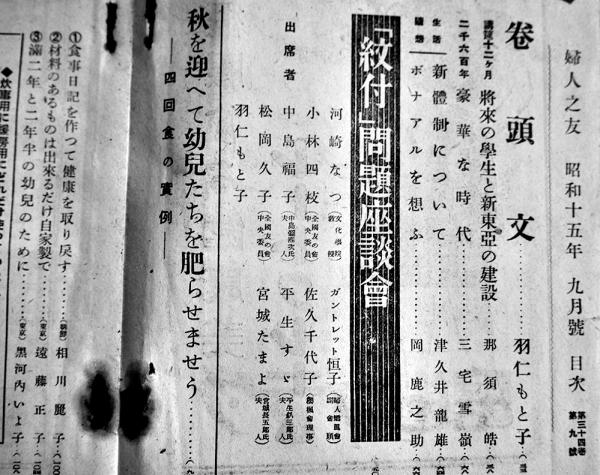 婦人之友 昭和十五年 九月號 目次
第三十四卷
第九號
卷頭文……羽仁もと子…(
講筵十二ケ月 將來の學生と新東亞の建設……那須皓…(
二千六百年 豪華な時代……三宅雪嶺…(
生活 新體制について……津久井龍雄…(六
隨想 ボナアルを想ふ……岡鹿之助…(六
「紋付」問題座談會
出席者
河崎なつ(文化學院教授)
ガントレット恒子(婦人矯風會副會頭)
小林四枝(全國友の會中央委員)
佐久千代子(櫻楓會理事)
中島福子(中島彌團次氏夫人)
平生すゞ(平生釟三郎氏夫人)
松岡久子(全國友の會中央委員)
宮城たまよ(宮城長五郎氏夫人)
羽仁もと子
秋を迎へて幼兒たちを肥らせませう……(六
―四回食の實例―
①食事日記を作つて健康を取り戻す……(朝鮮)相川麗子…(一〇
②材料のあるものは出來るだけ自家製で……(東京)遠藤正子…(
③滿二年と二年半の幼兒のために……(東京)黑河內いよ子…(一〇
◆炊事用に